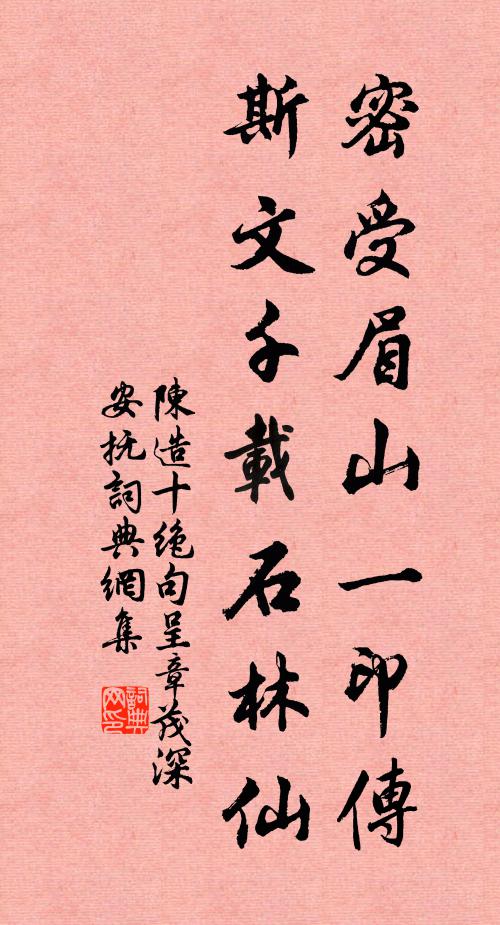 密受眉山一印傳
斯文千載石林仙
陳造十絶句呈章茂深
安抚詞典網集
詞典网印